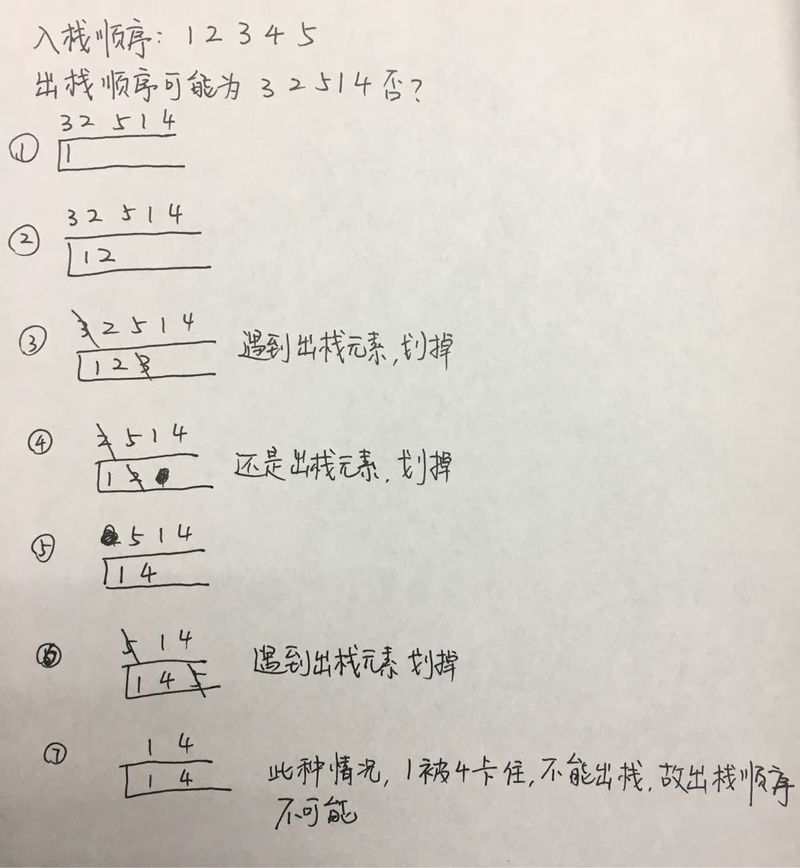 入栈顺序: 1 2 3 4 5
出栈顺序可能为 3 2 5 1 4 否?
3 2 5 1 4
① 1
3 2 5 1 4
② 1 2
3 2 5 1 4
③ 1 2 3 遇到出栈元素,划掉
2 5 1 4
④ 1 2 还是出栈元素,划掉
5 1 4
⑤ 1 4
5 1 4
⑥ 1 4 5 遇到出栈元素 划掉
1 4
⑦ 1 4 此种情况, 1被4卡住,不能出栈,故出栈顺序
不可能